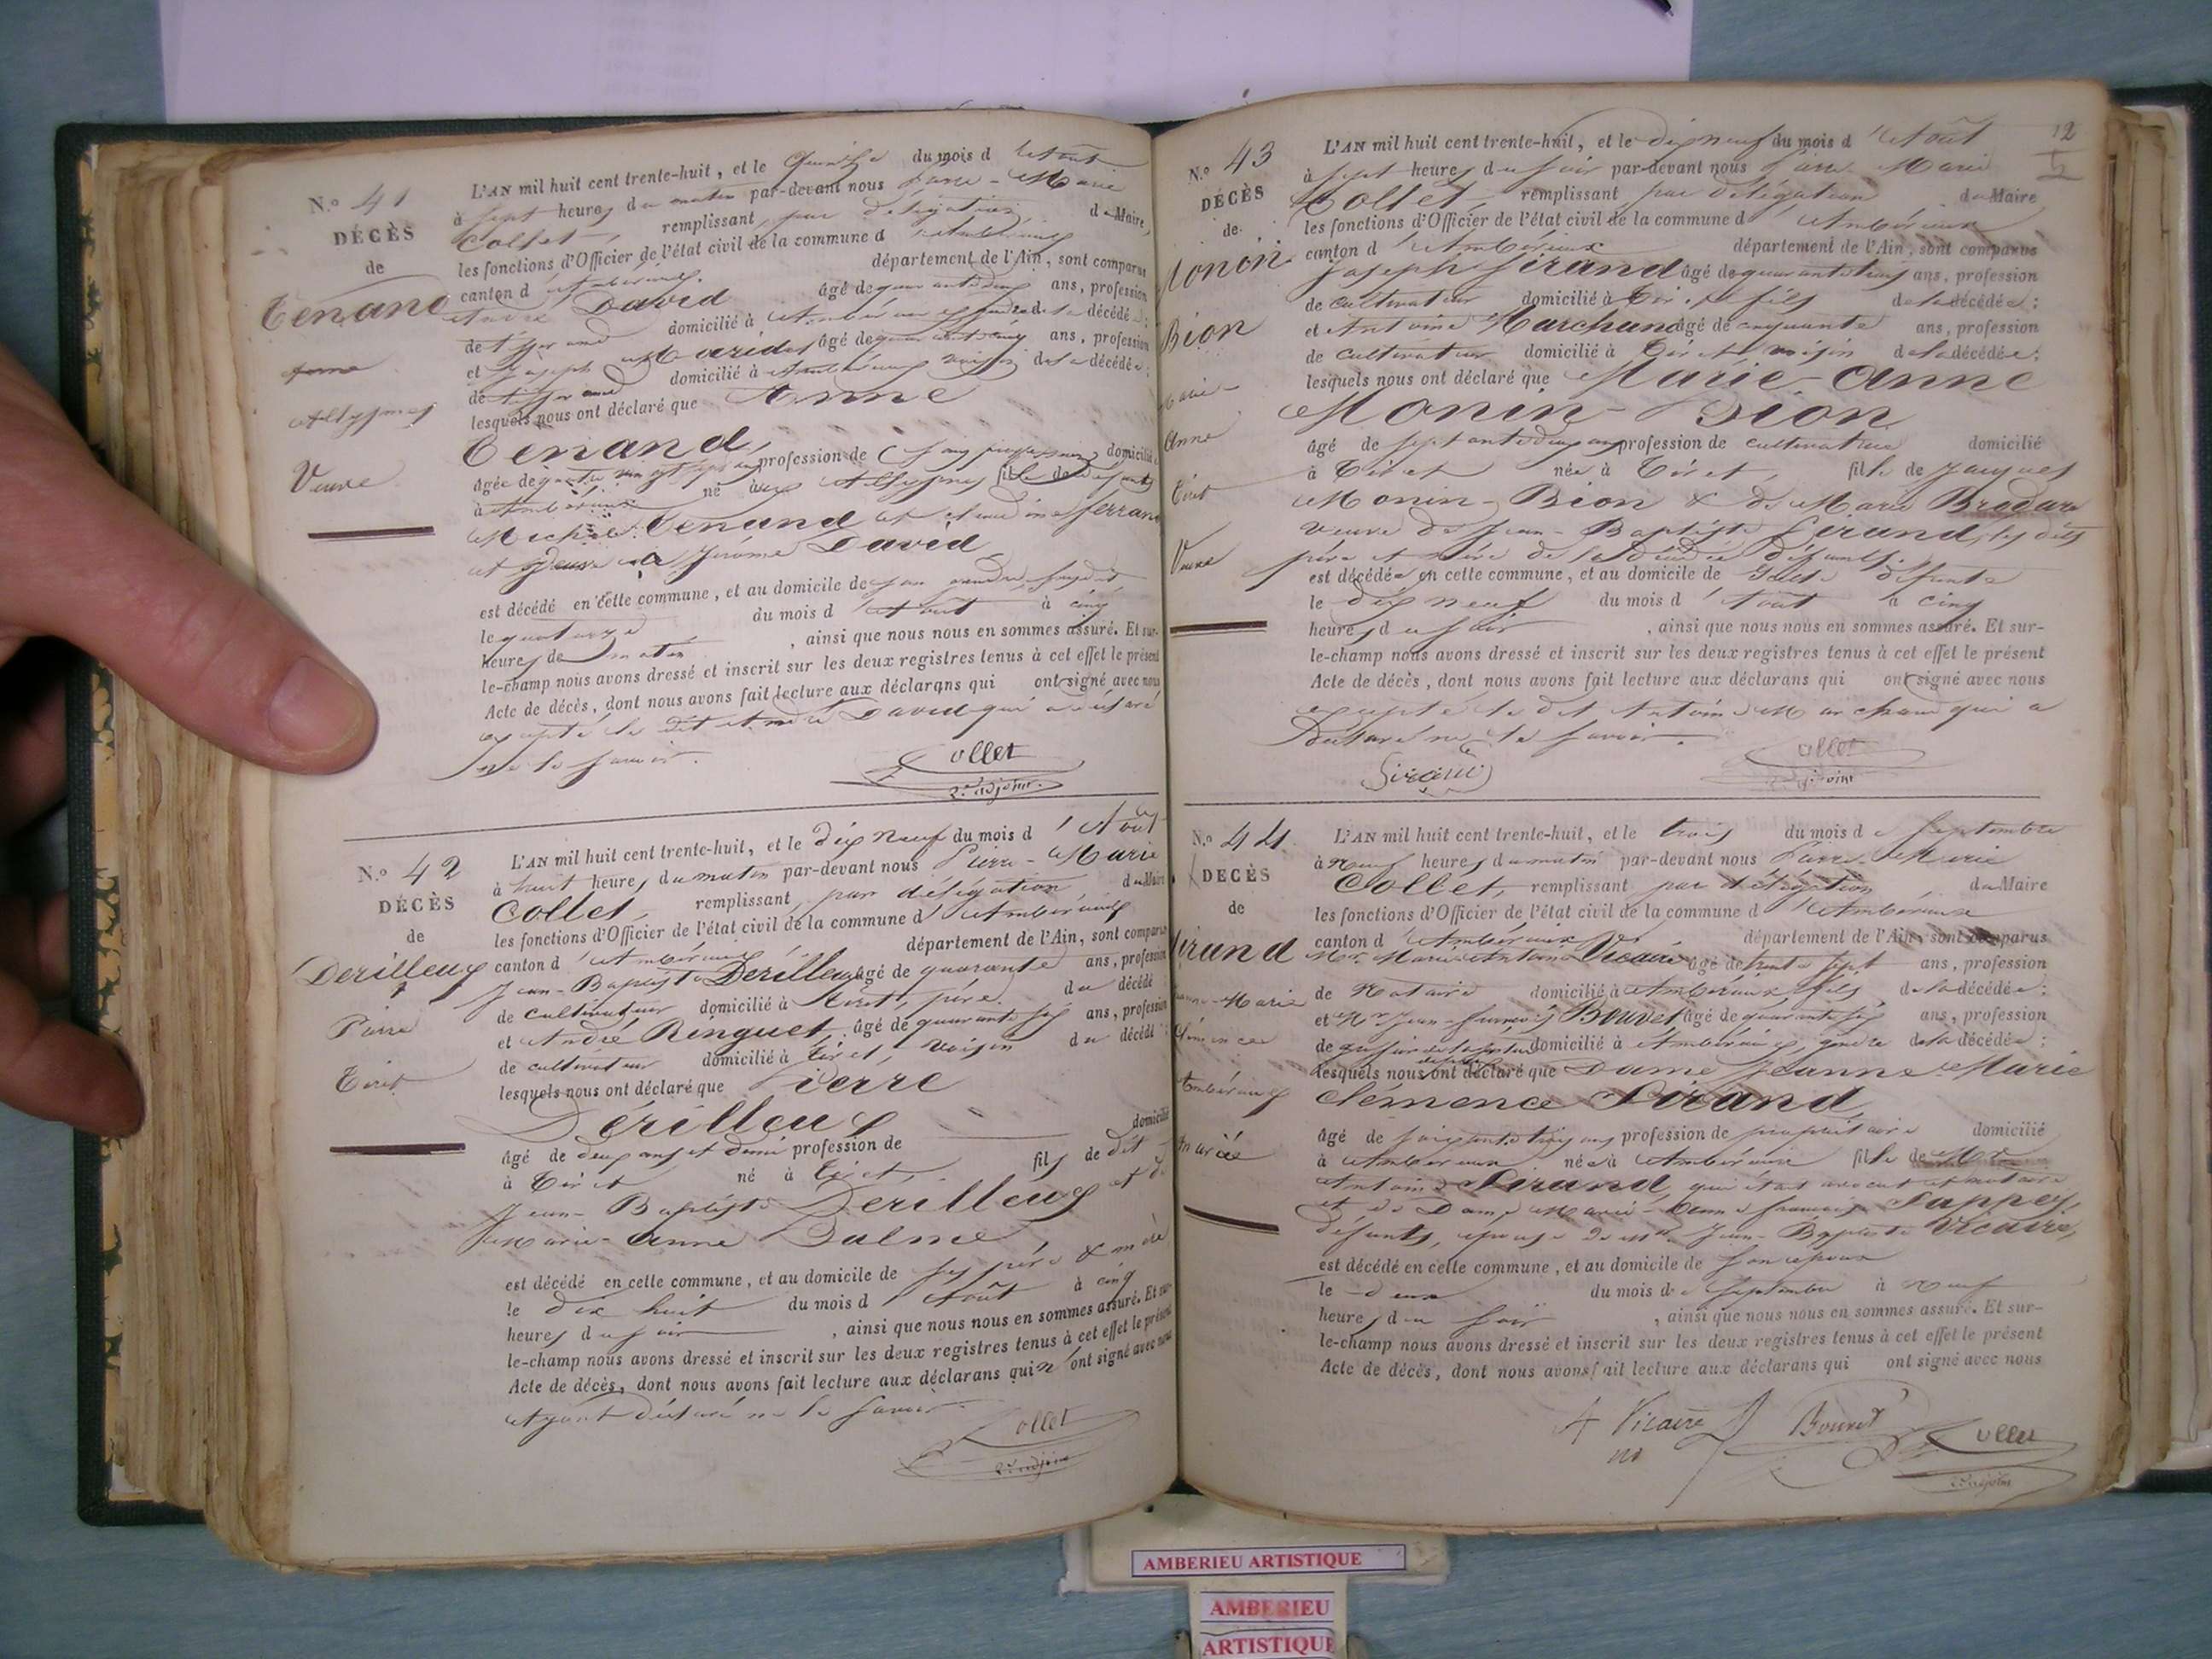 N.º 41
DÉCÈS
de
Tenand
Anne
Veuve
L'AN mil huit cent trente-huit, et le Quinze du mois d'Août
à sept heures du matin par-devant nous Pierre-Marie
Collet, remplissant par délégation du Maire,
les fonctions d'Officier de l'état civil de la commune d'Ambérieux
canton d'Ambérieux département de l'Ain, sont comparus
André David âgé de quarante ans, profession
de tisserand domicilié à Ambérieux gendre de la décédée;
et Joseph âgé de quarante cinq ans, profession
de tisserand domicilié à Ambérieux voisin de la décédée;
lesquels nous ont déclaré que Anne
Tenand,
âgée de quatre vingt sept ans profession de sans profession domiciliée
à Ambérieux né aux Allymes fille de défunts
Michel Tenand et Claudine Ferrand
et veuve de Jérôme David
est décédé en cette commune, et au domicile de son gendre susdit
le quatorze du mois d'Août à cinq
heures de matin, ainsi que nous nous en sommes assuré. Et sur-
le-champ nous avons dressé et inscrit sur les deux registres tenus à cet effet le présent
Acte de décès, dont nous avons fait lecture aux déclarans qui ont signé avec nous
excepté le dit André David qui a déclaré
ne le savoir.
Collet
2e adjoint.
N.º 42
DÉCÈS
de
Derilleux
Pierre
Tiret
L'AN mil huit cent trente-huit, et le dix neuf du mois d'Août
à huit heures du matin par-devant nous Pierre-Marie
Collet, remplissant par délégation du Maire
les fonctions d'Officier de l'état civil de la commune d'Ambérieux
canton d'Ambérieux département de l'Ain, sont comparus
Jean-Baptiste Derilleux âgé de quarante ans, profession
de cultivateur domicilié à Tiret, père du décédé
et André Ringuet, âgé de quarante six ans, profession
de cultivateur domicilié à Tiret, voisin du décédé;
lesquels nous ont déclaré que Pierre
Dérilleux
domicilié
âgé de deux ans et demi profession de
à Tiret né à Tiret, fils de dit
Jean-Baptiste Derilleux et de
Marie-Anne Balme
est décédé en cette commune, et au domicile de ses père & mère
le dix huit du mois d'Août à cinq
heures du soir, ainsi que nous nous en sommes assuré. Et sur-
le-champ nous avons dressé et inscrit sur les deux registres tenus à cet effet le présent
Acte de décès, dont nous avons fait lecture aux déclarans qui n'ont signé avec nous
Ayant déclaré ne le savoir.
Collet
2e adjoint
12
N.º 43
DÉCÈS
de
Monin
Bion
Marie-
Anne
Tiret
Veuve
L'AN mil huit cent trente-huit, et le dix neuf du mois d'Août
à sept heures du soir par-devant nous Pierre-Marie
Collet, remplissant par délégation du Maire
les fonctions d'Officier de l'état civil de la commune d'Ambérieux
canton d'Ambérieux département de l'Ain, sont comparus
Joseph Sirand âgé de quarante ans, profession
de cultivateur domicilié à Tiret, fils de la décédée;
et Antoine Marchand âgé de cinquante ans, profession
de cultivateur domicilié à Tiret voisin de la décédée;
lesquels nous ont déclaré que Marie-Anne
Monin-Bion
âgé de septante deux ans profession de cultivatrice domicilié
à Tiret née à Tiret, fille de Jacques
Monin-Bion & de Marie
Veuve de Jean-Baptiste Sirand, les dits
père et mère de la décédée défunts
est décédée en cette commune, et au domicile de la dite défunte
le dix neuf du mois d'Août à cinq
heures du soir, ainsi que nous nous en sommes assuré. Et sur-
le-champ nous avons dressé et inscrit sur les deux registres tenus à cet effet le présent
Acte de décès, dont nous avons fait lecture aux déclarans qui ont signé avec nous
excepté le dit Antoine Marchand qui a
Déclaré ne le savoir.
Sirand
Collet
2e adjoint
N.º 44.
DÉCÈS
de
Sirand
Jeanne-Marie
Clémence
Ambérieux
mariée
L'AN mil huit cent trente-huit, et le trois du mois de Septembre
à neuf heures du matin par-devant nous Pierre-Marie
Collet, remplissant par délégation du Maire
les fonctions d'Officier de l'état civil de la commune d'Ambérieux
canton d'Ambérieux département de l'Ain, sont comparus
Mr. Marie Antoine Vicaire âgé de trente sept ans, profession
de Notaire domicilié à Ambérieux fils de la décédée;
et Mr Jean-François Bouvet âgé de quarante six ans, profession
de domicilié à Ambérieux, gendre de la décédée;
lesquels nous ont déclaré que Dame Jeanne Marie
Clémence Sirand,
âgé de soixante trois ans profession de propriétaire domicilié
à Ambérieux née à Ambérieux fille de Mr
Antoine Sirand, qui était avocat et notaire
et de Dame Marie- françoise Sappey,
défunts, épouse de Mr. Jean-Baptiste Vicaire,
est décédé en cette commune, et au domicile de son époux
le deux du mois de Septembre à neuf
heures du soir, ainsi que nous nous en sommes assuré. Et sur-
le-champ nous avons dressé et inscrit sur les deux registres tenus à cet effet le présent
Acte de décès, dont nous avons fait lecture aux déclarans qui ont signé avec nous
A Vicaire Bouvet Collet
2e adjoint
AMBERIEU ARTISTIQUE
AMBERIEU
ARTISTIQUE